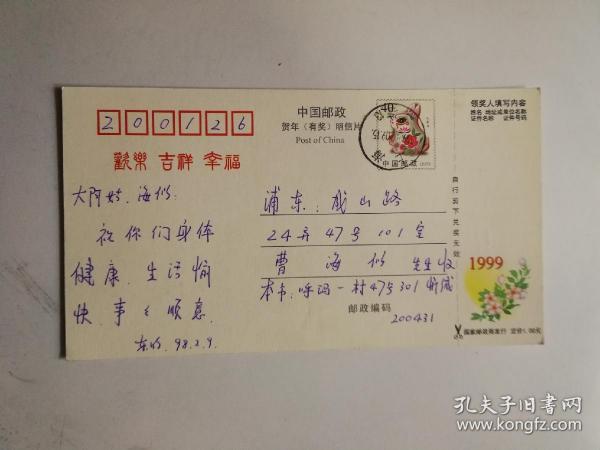 200126
歡樂 吉祥 幸福
中国邮政
贺年(有奖)明信片
Post of China
40
中国邮政
领奖人填写内容
姓名 地址或单位名称
证件名称 证件号码
大阿姑、海似:
祝你们身体
健康、生活愉
快、事事顺意
98.2.9.
浦东:成山路
24弄47号101室
曹海似 先生收
本市、呼玛一村475301
邮政编码
200431
自行剪下兑奖无效
1999
国家邮政局发行 定价1.00元
孔夫子旧书网
www.kongfz.com